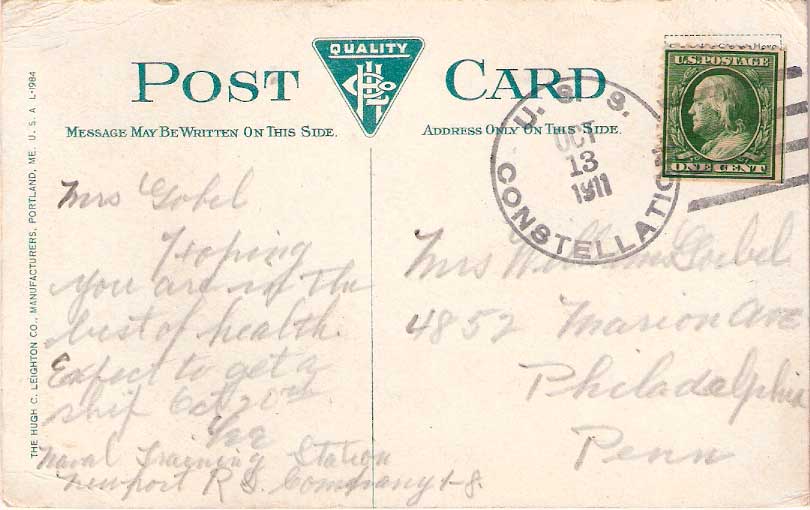 QUALITY
POST CARD
MESSAGE MAY BE WRITTEN ON THIS SIDE.
ADDRESS ONLY ON THIS SIDE.
THE HUGH C. LEIGHTON CO., MANUFACTURERS, PORTLAND, ME. U. S. A. L-1984
U.S. POSTAGE
ONE CENT
U. S. S.
OCT
13
1911
CONSTELLATION
Mrs Gobel
Hoping
you are in the
best of health.
Expect to get a
ship Oct 20th
Naval Training Station
Newport R I. Company 1-8.
Mrs William Goebel
4852 Marion Ave
Philadelphia
Penn